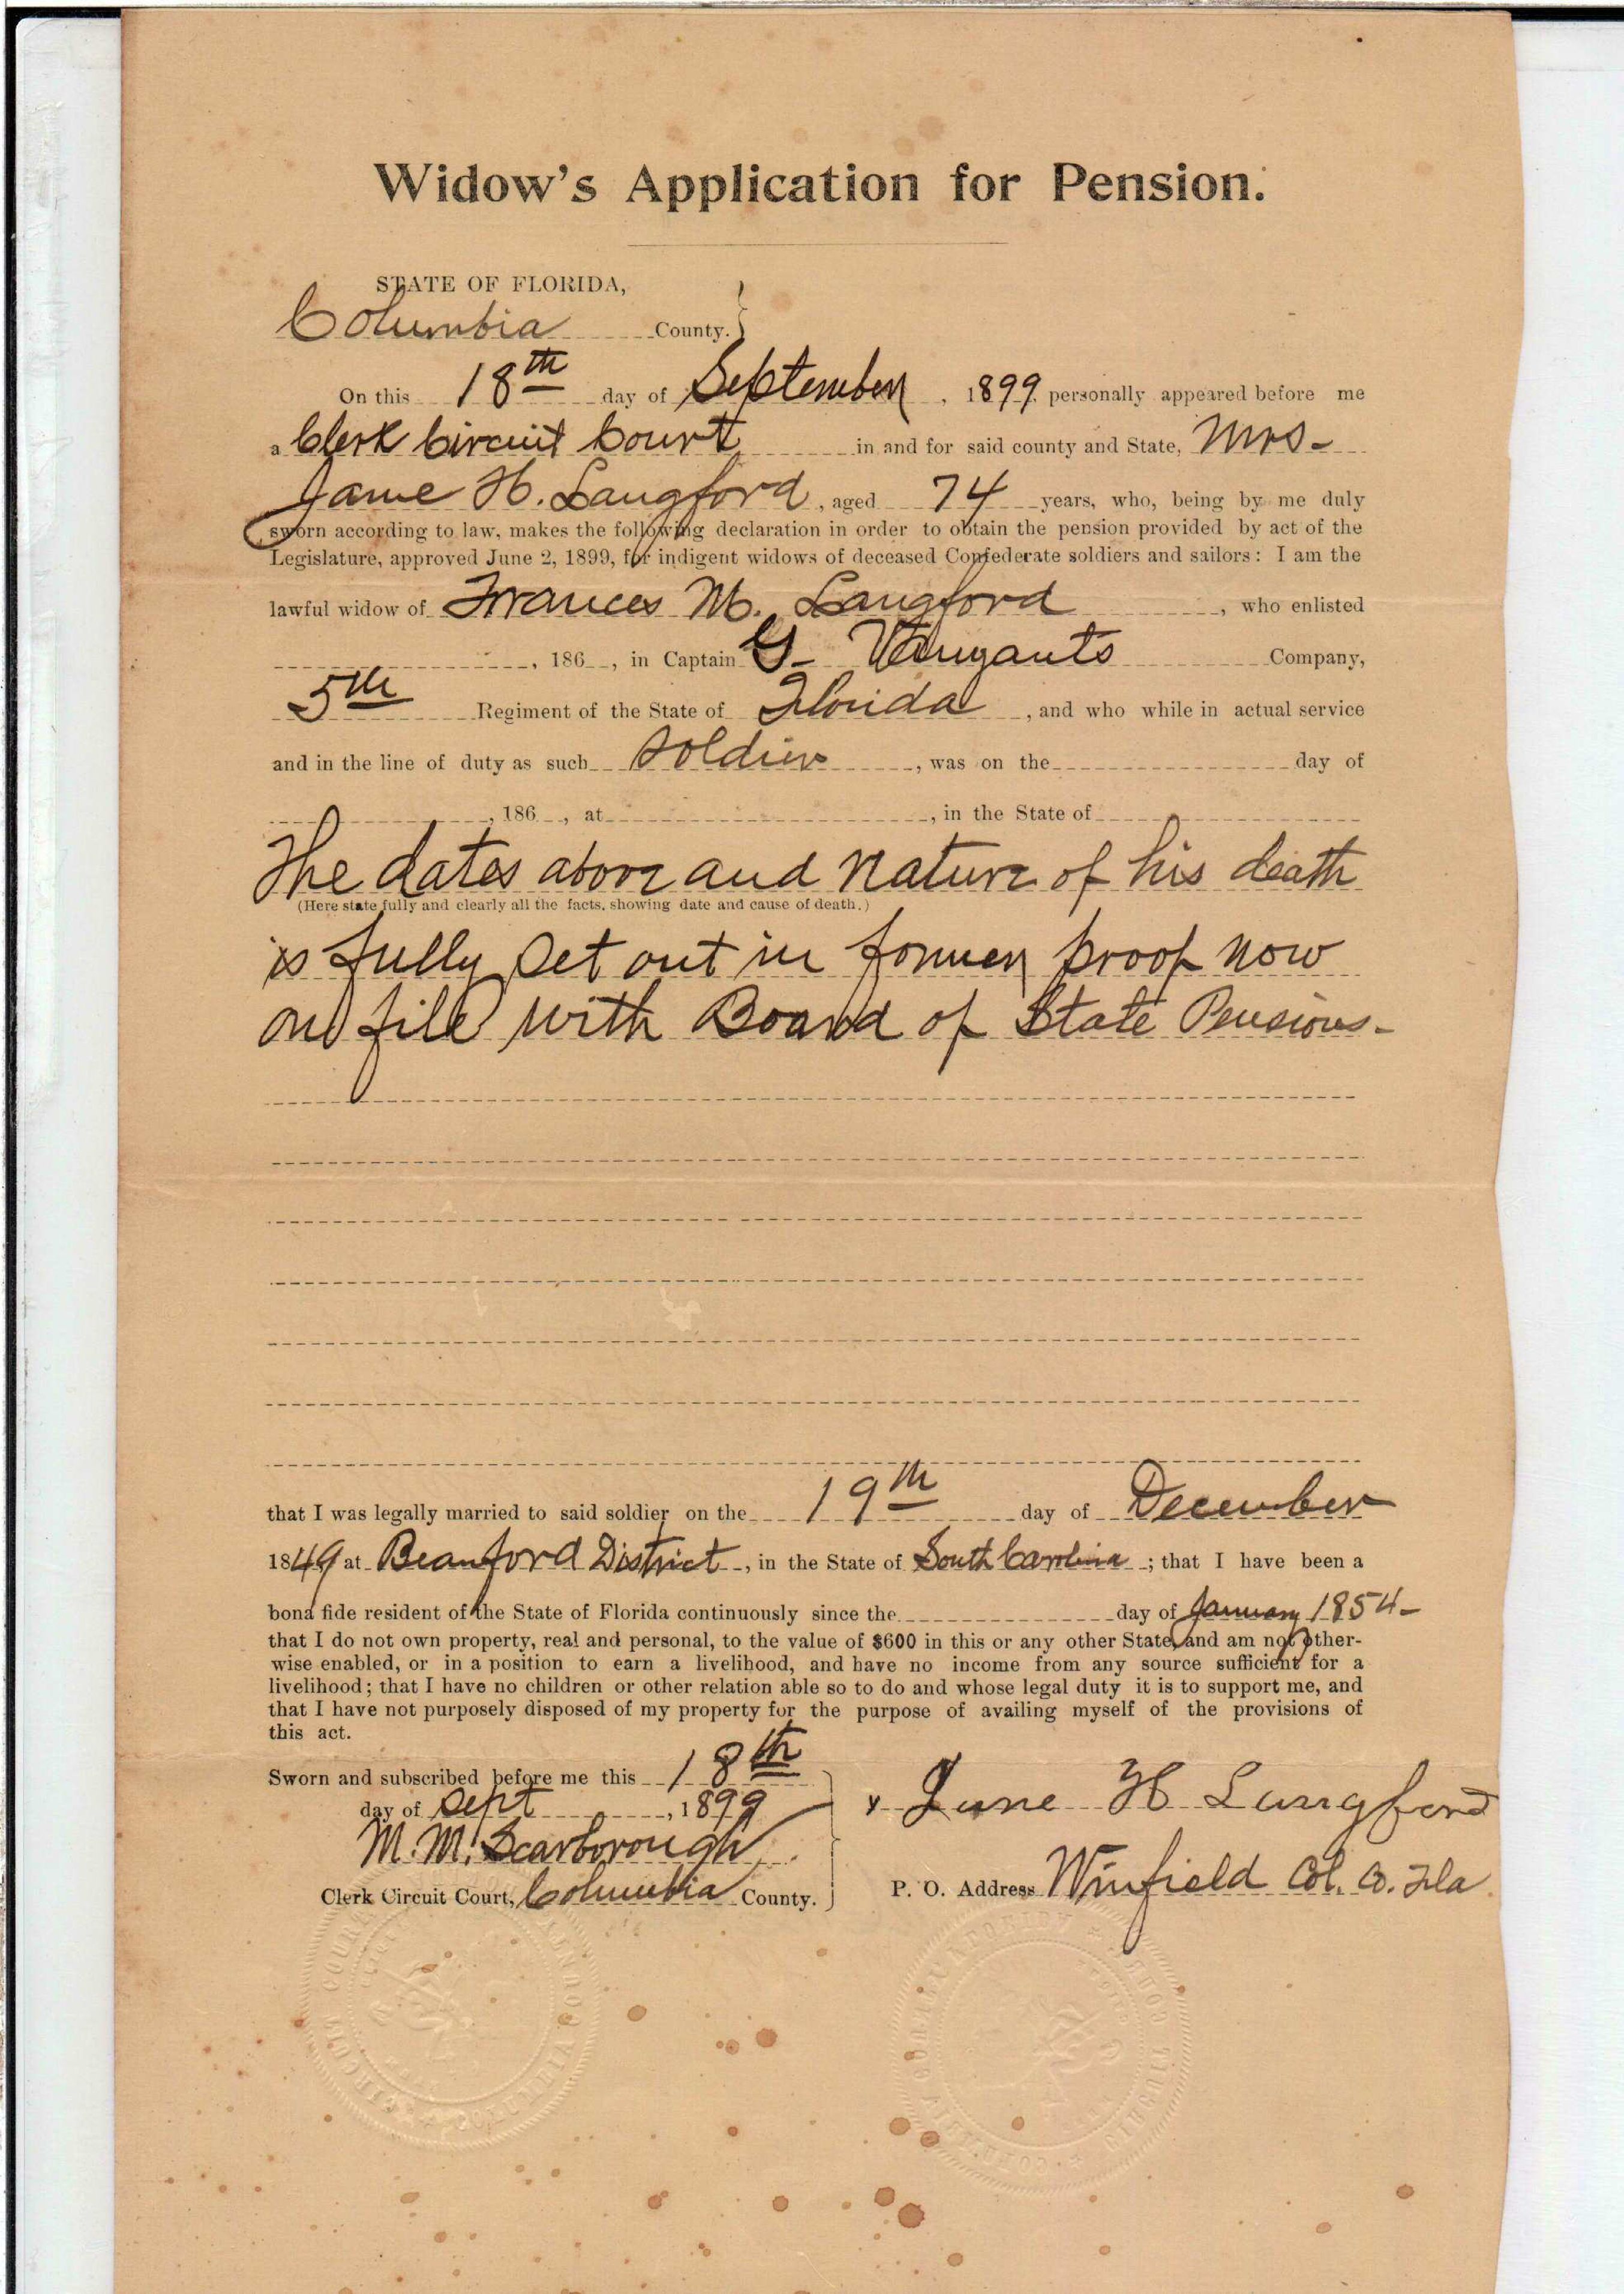 Widow's Application for Pension.
STATE OF FLORIDA,
Columbia County.
On this 18th day of September, 1899 personally appeared before me
a Clerk Circuit Court in and for said county and State, Mrs-
Jane H. Langford, aged 74 years, who, being by me duly
sworn according to law, makes the following declaration in order to obtain the pension provided by act of the
Legislature, approved June 2, 1899, for indigent widows of deceased Confederate soldiers and sailors: I am the
lawful widow of Frances M. Langford, who enlisted
, 186 , in Captain G- Vanzants Company,
5th Regiment of the State of Florida, and who while in actual service
and in the line of duty as such soldier, was on the day of
, 186 , at , in the State of
The dates above and nature of his death
(Here state fully and clearly all the facts, showing date and cause of death.)
is fully set out in former proof now
on file with Board of State Pensions-
that I was legally married to said soldier on the 19th day of December
1849 at Beauford District, in the State of South Carolina; that I have been a
bona fide resident of the State of Florida continuously since the day of January 1854-
that I do not own property, real and personal, to the value of $600 in this or any other State, and am not other-
wise enabled, or in a position to earn a livelihood, and have no income from any source sufficient for a
livelihood; that I have no children or other relation able so to do and whose legal duty it is to support me, and
that I have not purposely disposed of my property for the purpose of availing myself of the provisions of
this act.
Sworn and subscribed before me this 18th
day of Sept, 1899
x Jane H Langford
M. M. Scarborough
Clerk Circuit Court, Columbia County.
P. O. Address Winfield Col. Co. Fla